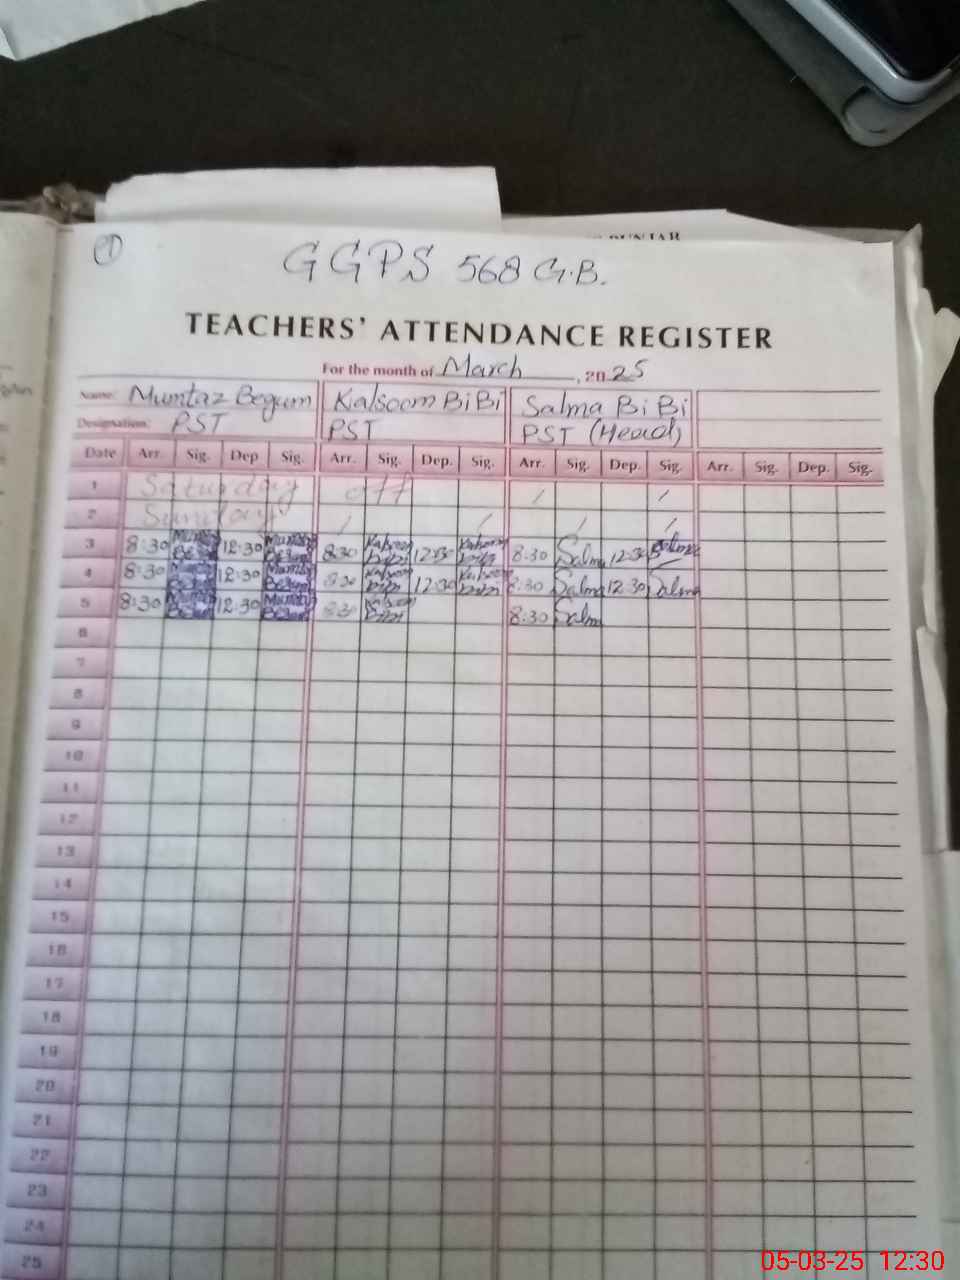 1
GGPS 568 G.B.
TEACHERS' ATTENDANCE REGISTER
For the month of March, 2025
Name: Mumtaz Begum Kalsoom BiBi Salma BiBi
Designation: PST PST PST (Head)
Date Arr. Sig. Dep Sig. Arr. Sig. Dep. Sig. Arr. Sig. Dep. Sig. Arr. Sig. Dep. Sig.
1 Saturday off
2 Sunday
3 8:30 Mumtaz Begum 12:30 Mumtaz Begum 8:30 Kalsoom bibi 12:30 Kalsoom bibi 8:30 Salma 12:30 Salma
4 8:30 Mumtaz Begum 12:30 Mumtaz Begum 8:30 Kalsoom bibi 12:30 Kalsoom bibi 8:30 Salma 12:30 Salma
5 8:30 Mumtaz Begum 12:30 Mumtaz Begum 8:30 Kalsoom bibi 8:30 Salma
6
7
8
9
10
11
12
13
14
15
16
17
18
19
20
21
22
23
24
25
05-03-25 12:30